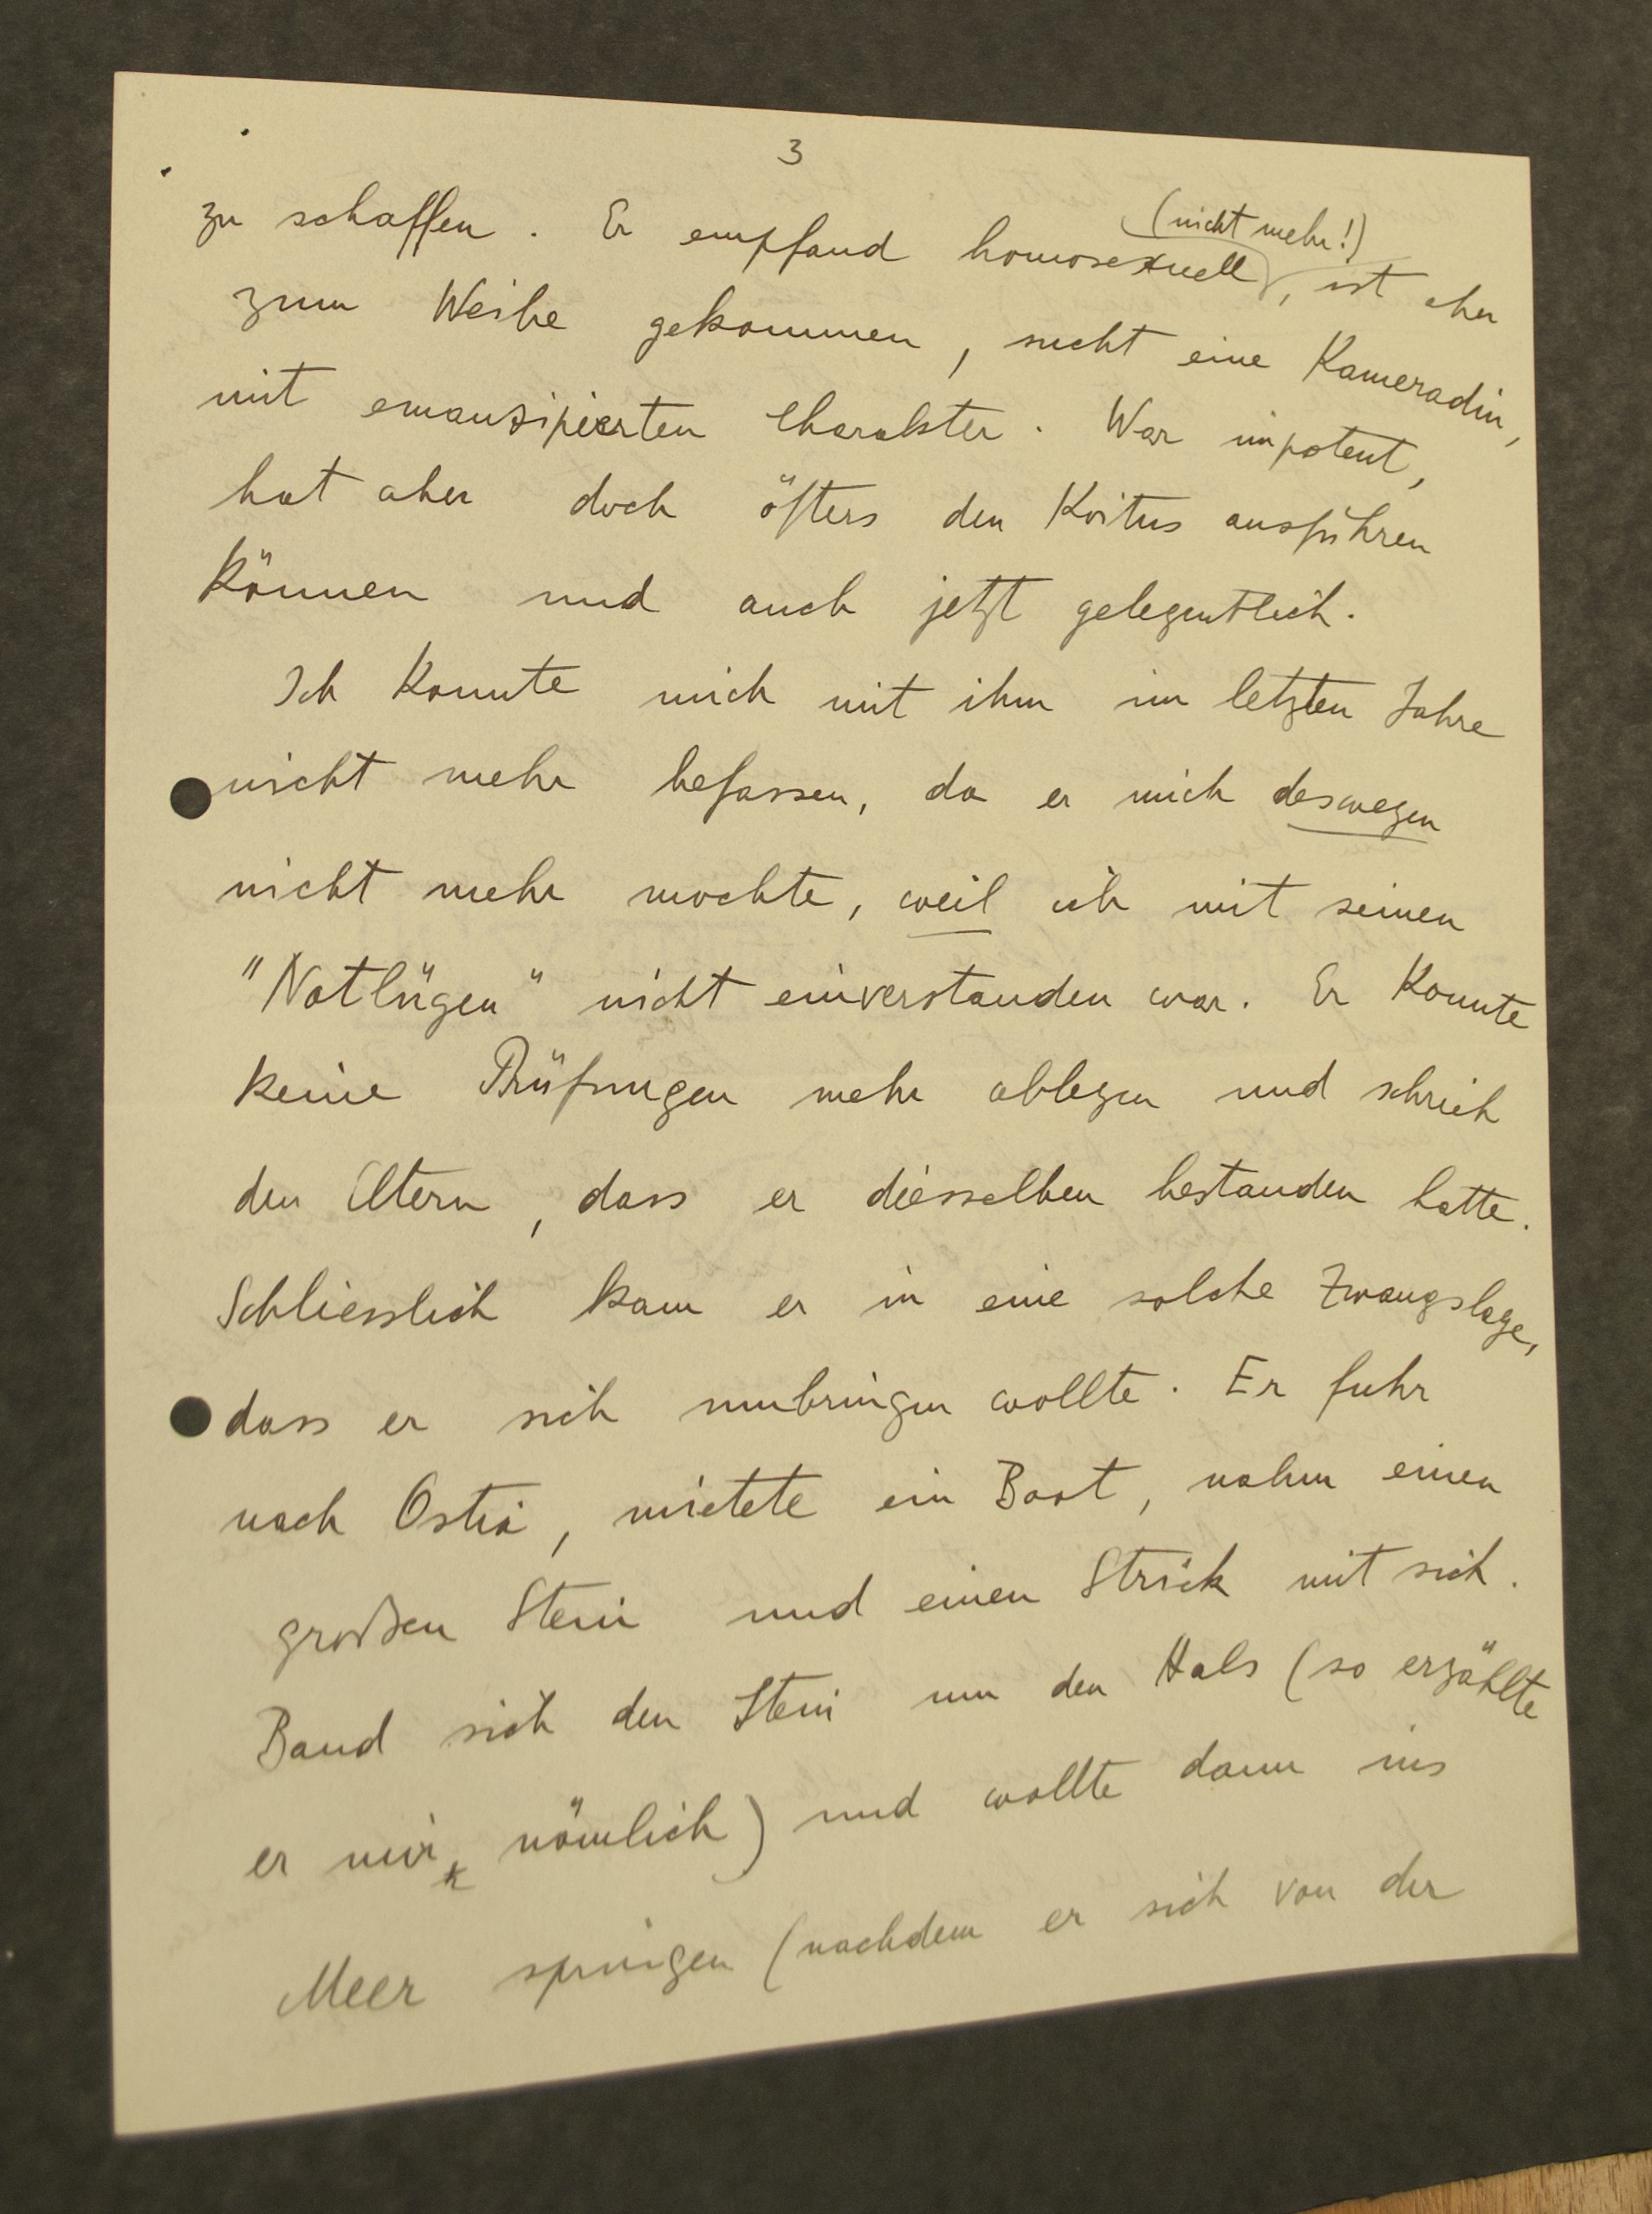 3
zu schaffen. Er empfand homosexuell (nicht mehr!), ist aber
zum Weibe gekommen, sucht eine Kameradin,
mit emanzipierten Charakter. War impotent,
hat aber doch öfters den Koitus ausführen
können und auch jetzt gelegentlich.
Ich konnte mich mit ihm im letzten Jahre
nicht mehr befassen, da er mich deswegen
nicht mehr mochte, weil ich mit seinen
"Notlügen" nicht einverstanden war. Er konnte
keine Prüfungen mehr ablegen und schrieb
den Eltern, dass er diesselben bestanden hatte.
Schliesslich kam er in eine solche Zwangslage,
dass er sich umbringen wollte. Er fuhr
nach Ostia, mietete ein Boot, nahm einen
großen Stein und einen Strick mit sich.
Band sich den Stein um den Hals (so erzählte
er mir nämlich) und wollte dann ins
Meer springen (nachdem er sich von der